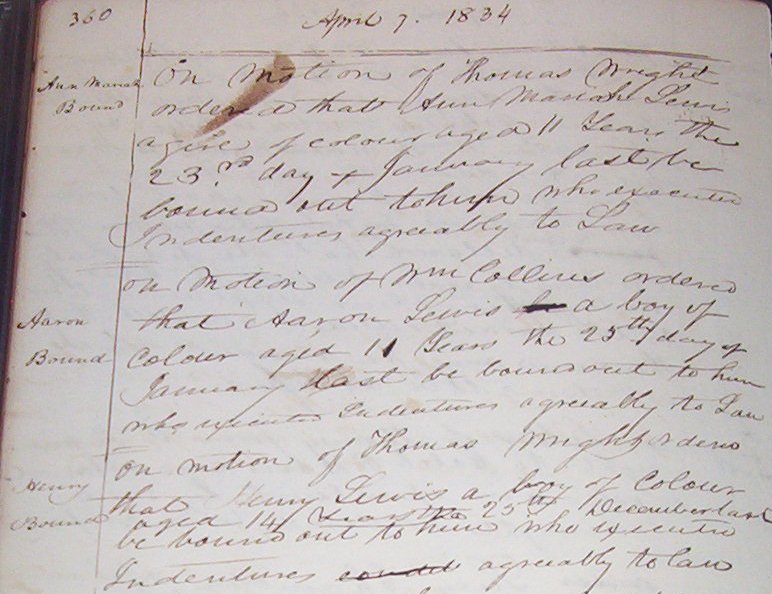 360 April 7. 1834
Ann Mariah
Bound
On Motion of Thomas Wright
ordered that Ann Mariah Lewis
a girl of colour aged 11 Years the
23rd day of January last be
bound out to him who executed
Indentures agreeably to Law
on Motion of Wm Collins ordered
Aaron
Bound
that Aaron Lewis a boy of
Colour aged 11 Years the 25th day of
January last be bound out to him
who executed Indentures agreeably to Law
On motion of Thomas Wright orderd
Henry
Bound
that Henry Lewis a boy of Colour
aged 14 Years the 25th December last
be bound out to him who executed
Indentures agreeably to law